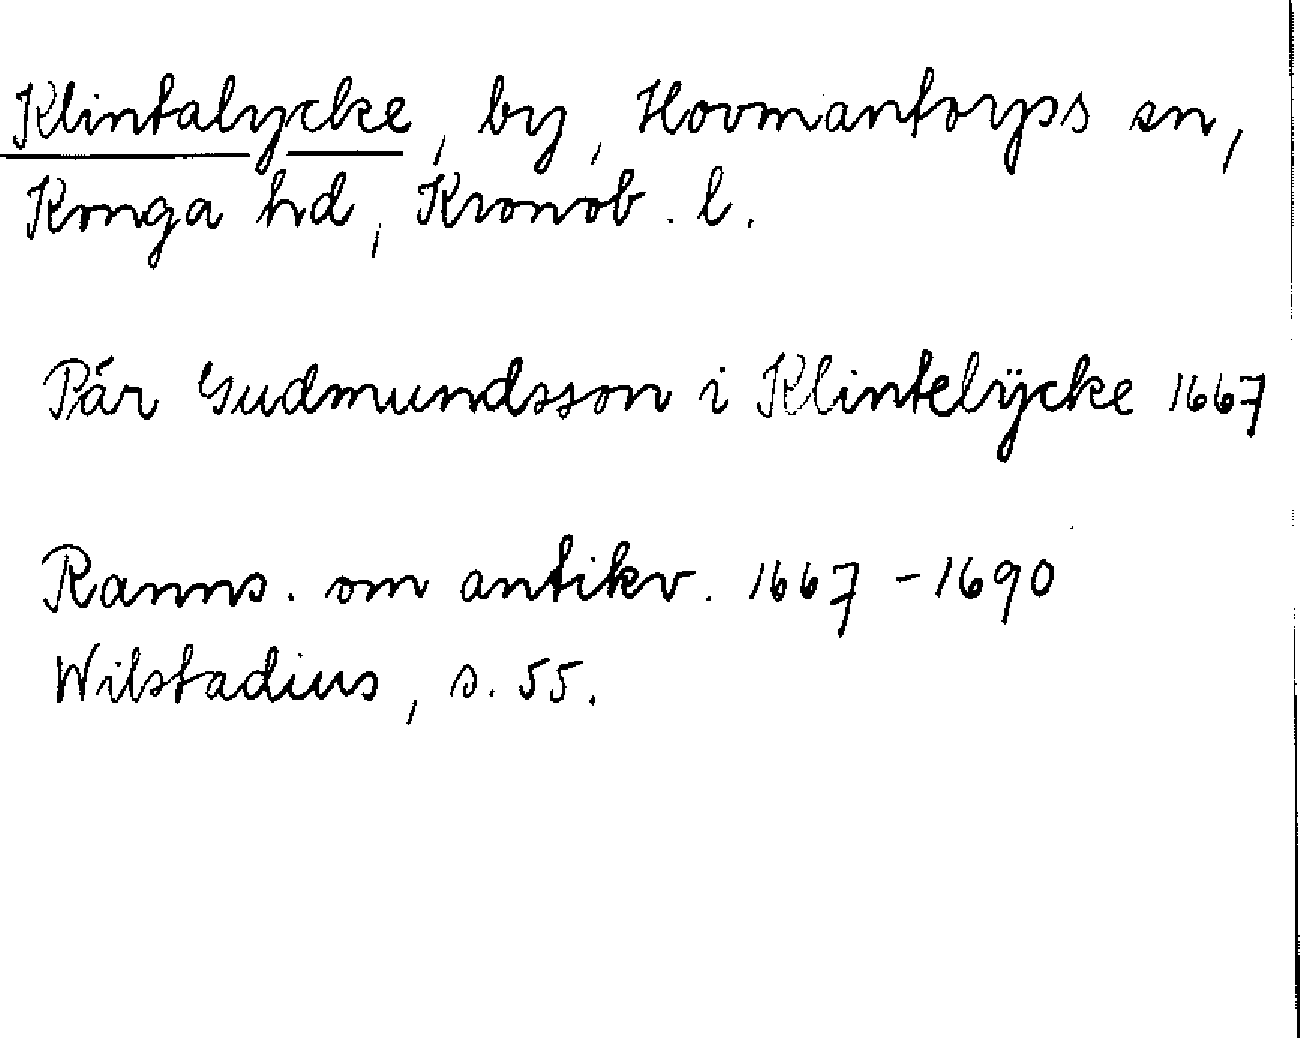 Klintalycke, by, Hovmantorps sn,
Konga hd, Kronob. l.
Pár Gudmundsson i Klintelÿcke 1667
Ranns. om antikv. 1667-1690
Wilstadius, s. 55.